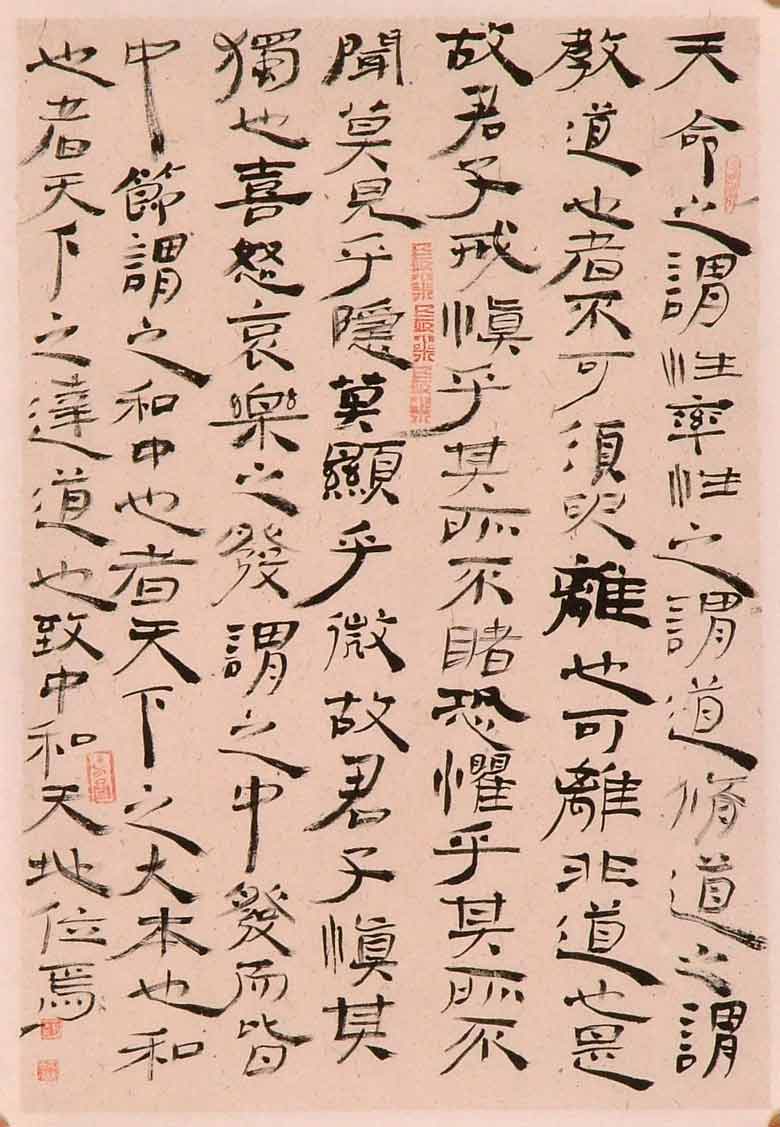 天命之謂性率性之謂道脩道之謂
教道也者不可須臾離也可離非道也是
故君子戒慎乎其所不睹恐懼乎其所不
聞莫見乎隱莫顯乎微故君子慎其
獨也喜怒哀樂之發謂之中發而皆
中節謂之和中也者天下之大本也和
也者天下之達道也致中和天地位焉